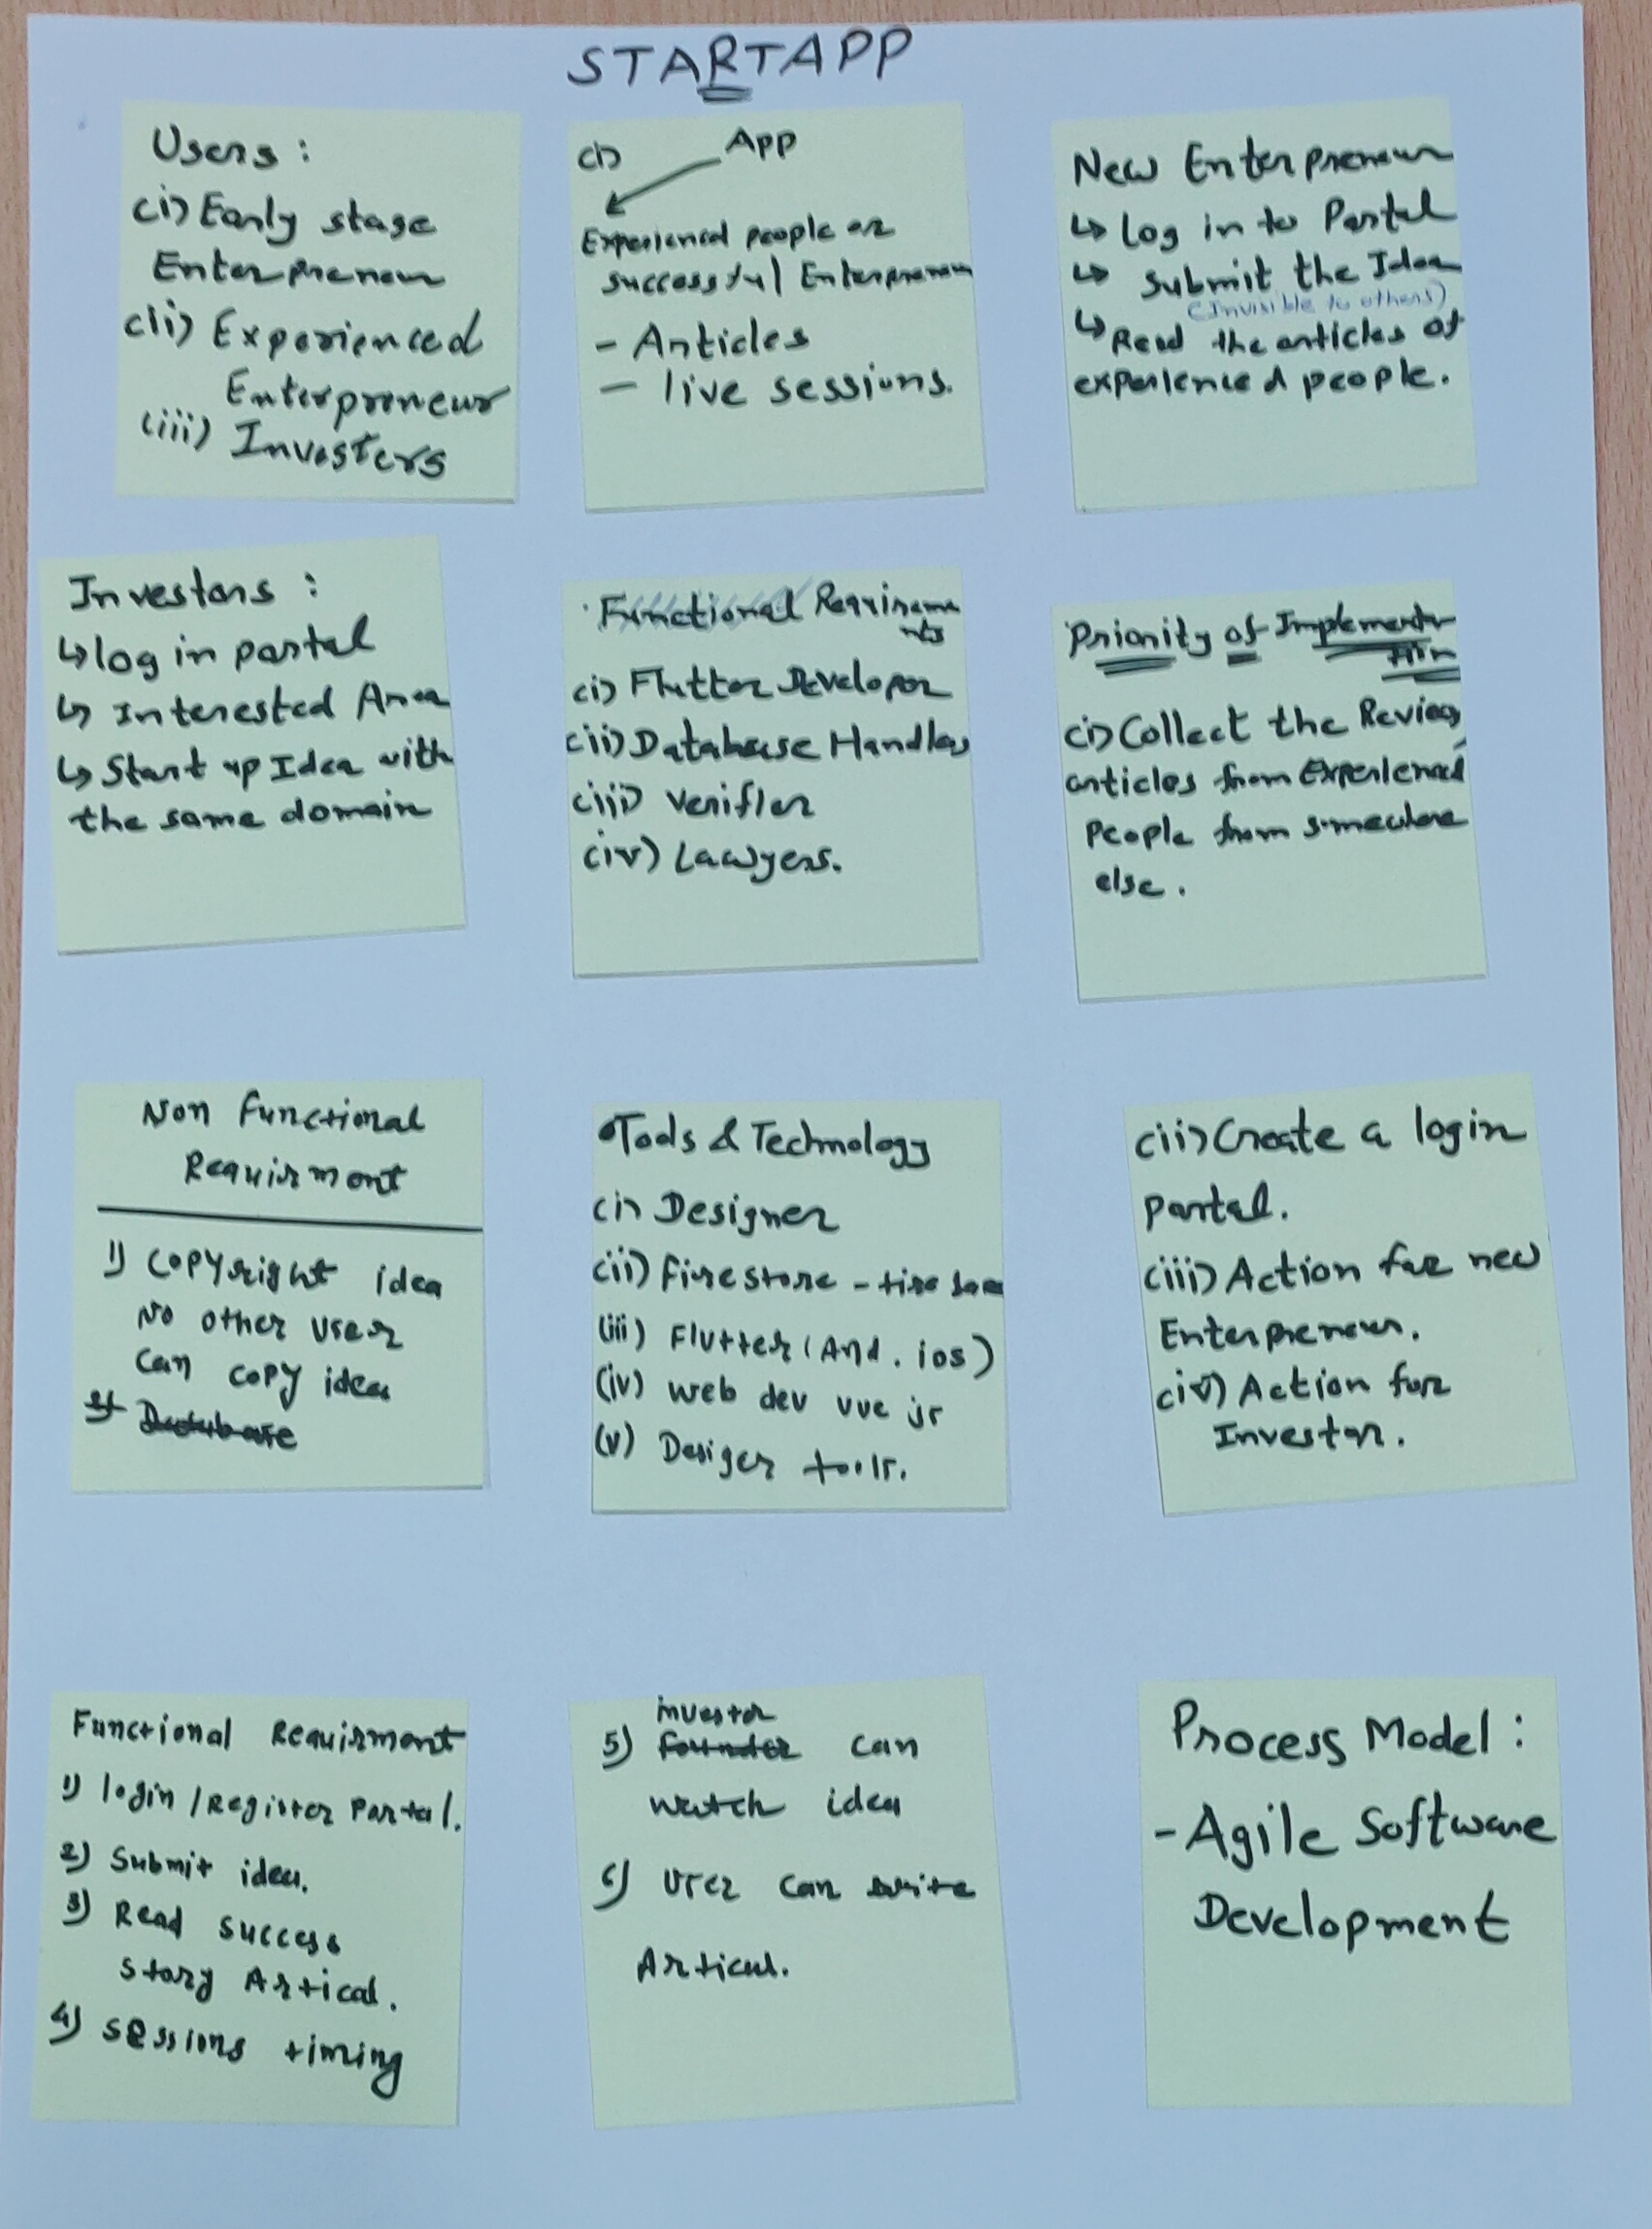 STARTAPP
Users :
(i) Early stage
Enterpreneur
(ii) Experienced
Enterpreneur
(iii) Investers
(i) App
Experienced people or
successful Enterpreneur
- Articles
- live sessions.
New Enterpreneur
↳ Log in to Portal
↳ Submit the Idea
(Invisible to others)
↳ Read the articles of
experienced people.
Investors :
↳ log in portal
↳ Interested Area
↳ Start up Idea with
the same domain
Functional Requireme
nts
(i) Flutter Developer
(ii) Database Handler
(iii) Verifier
(iv) Lawyers.
Priority of Implementa
tion
(i) Collect the Review,
articles from Experienced
People from somewhere
else.
Non Functional
Requirment
1) Copyright idea
No other user
can copy idea
2) Database
Tools & Technology
(i) Designer
(ii) firestore - fire base
(iii) Flutter (And. ios)
(iv) web dev vue js
(v) Desiger tools.
(ii) Create a login
portal.
(iii) Action for new
Enterpreneur.
(iv) Action for
Investor.
Functional Requirment
1) login / Register Portal.
2) Submit idea.
3) Read success
story Artical.
4) sessions timing
investor
5) founder can
watch idea
6) User can write
Artical.
Process Model :
- Agile Software
Development